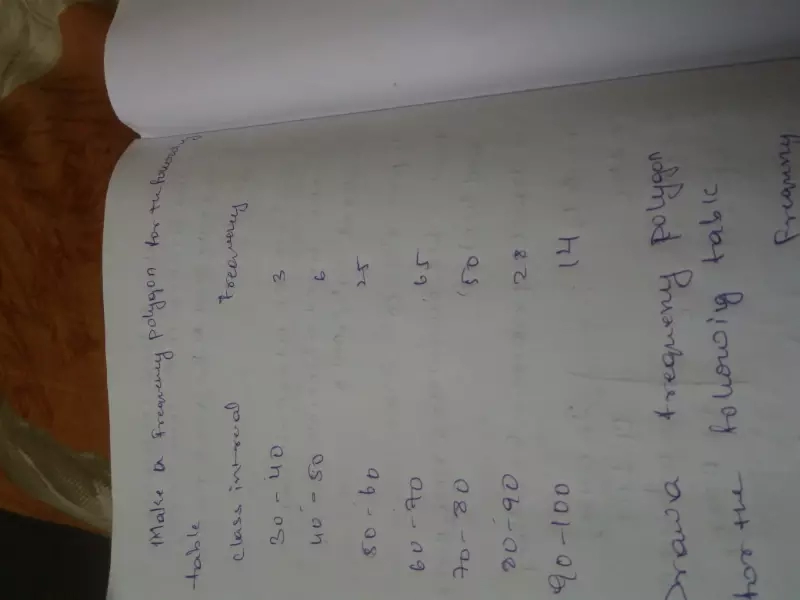 Make a frequency polygon for the following
table
class intreval frequency
30-40 3
40-50 6
50-60 25
60-70 65
70-80 50
80-90 28
90-100 14
Draw a frequeny polygon
for the following table
Frequny